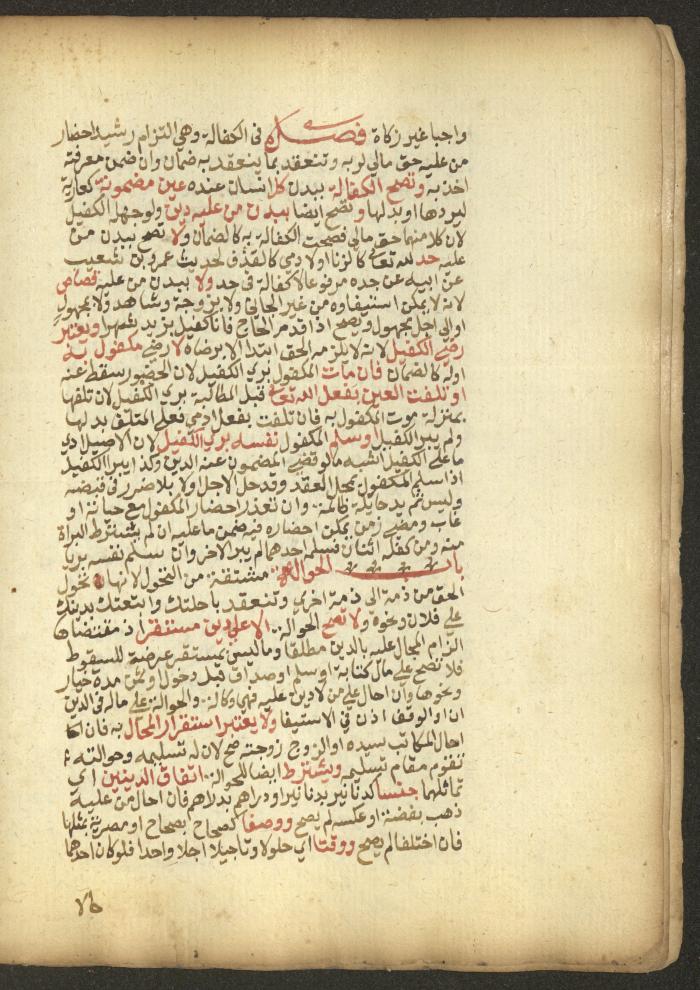 واجبا غير زكاة فصل في الكفالة وهي التزام رشيد احضار
من عليه حق مالي لربه وتنعقد بما ينعقد به ضمان وان ضمن معرفته
اخذ به وتصح الكفالة ببدن كل انسان عنده عين مضمونة كعارية
ليردها او بدلها وتصح ايضا ببدن من عليه دين ولو جهل الكفيل
لان كلا منهما حق مالي فصحت الكفالة به كالضمان ولا تصح ببدن من
عليه حد لله تعالى كالزنا او لادمي كالقذف لحديث عمرو بن شعيب
عن ابيه عن جده مرفوعا لا كفالة في حد ولا ببدن من عليه قصاص
لانه لا يمكن استيفاوه من غير الجاني ولا بزوجة وشاهد ولا بمجهول
او الى اجل مجهول ويصح اذا قدم الحاج فانا كفيل بزيد شهرا ويعتبر
رضى الكفيل لانه لا يلزمه الحق ابتدا الا برضاه لا رضى مكفول به
اوله كالضمان فان مات المكفول بري الكفيل لان الحضور سقط عنه
او تلفت العين بفعل الله تعالى قبل المطالبة بري الكفيل لان تلفها
بمنزلة موت المكفول به فان تلفت بفعل ادمي فعلى المتلف بدلها
ولم يبر الكفيل وسلم المكفول نفسه بري الكفيل لان الاصيل ادى
ما على الكفيل اشبه مالو قضى المضمون عنه الدين وكذا يبرا الكفيل
اذا سلم المكفول بمحل العقد وقد حل الاجل اولا بلا ضرر في قبضه
وليس ثم يد حايلة ظالمة وان تعذر احضار المكفول مع حياته او
غاب ومضى زمن يمكن احضاره فيه ضمن ما عليه ان لم يشترط البراة
منه ومن كفله اثنان فسلمه احدهما لم يبر الاخر وان سلم نفسه بريا
باب الحوالة مشتقة من التحول لانها تحول
الحق من ذمة الى ذمة اخرى وتنعقد باحلتك واتبعتك بدينك
على فلان ونحوه ولا تصح الحوالة الا على دين مستقر اذ مقتضاها
الزام المحال عليه بالدين مطلقا وما ليس بمستقر عرضة للسقوط
فلا تصح على مال كتابة او سلم او صداق قبل دخول او ثمن مدة خيار
ونحوها وان احال على من لا دين عليه فهي وكالة والحوالة على ماله في الدين
او الوقف اذن في الاستيفا ولا يعتبر استقرار المحال به فان احال
المكاتب سيده او الزوج زوجته صح لان له تسليمه وحوالته
تقوم مقام تسليمه ويشترط ايضا للحوالة اتفاق الدينين اي
تماثلهما جنسا كدنانير بدنانير او دراهم بدراهم فان احال من عليه
ذهب بفضة او عكسه لم يصح ووصفا كصحاح بصحاح او مصرية بمثلها
فان اختلفا لم يصح ووقتا اي حلولا وتاجيلا اجلا واحدا فلو كان احدهما